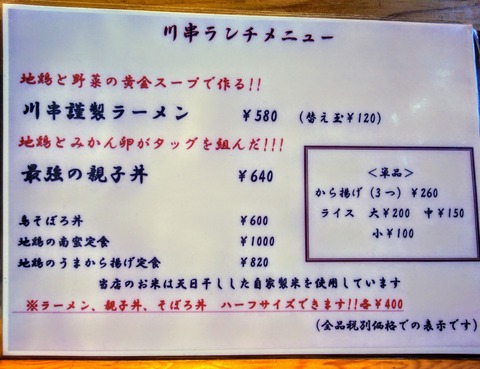 川串ランチメニュー
地鶏と野菜の黄金スープで作る!!
川串謹製ラーメン ¥580 (替え玉¥120)
地鶏とみかん卵がタッグを組んだ!!!
最強の親子丼 ¥640
鳥そぼろ丼 ¥600
地鶏の南蛮定食 ¥1000
地鶏のうまから揚げ定食 ¥820
<単品>
から揚げ(3つ) ¥260
ライス 大¥200 中¥150
小¥100
当店のお米は天日干しした自家製米を使用しています
※ラーメン、親子丼、そぼろ丼 ハーフサイズできます!!各¥400
(全品税別価格での表示です)